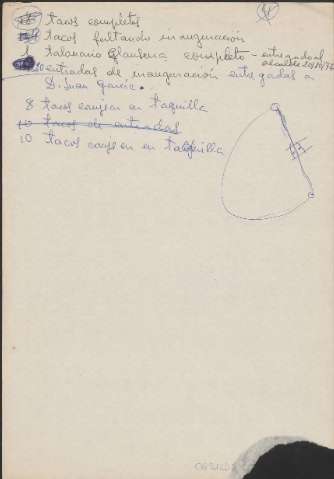 tacos completos
tacos faltando inauguración
1 talonario Glauberia completo - entregado al
alcalde
entradas de inauguración entregadas a
D. Juan García.
8 tacos canjeo en taquilla
10 tacos de entradas
10 tacos canjeo en taquilla